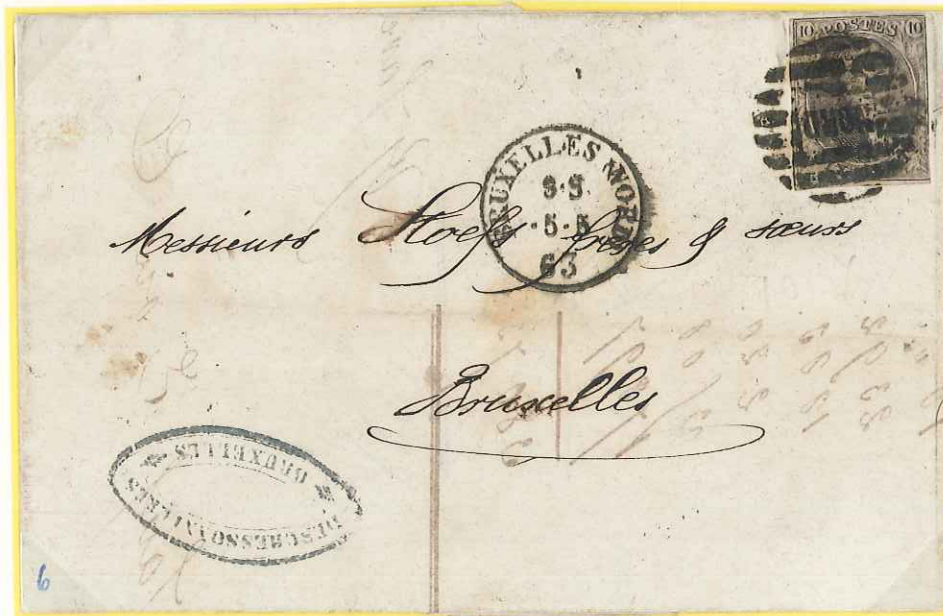 10 POSTES 10
BRUXELLES NORD
8-S.
·5-5
63
Messieurs Stoefs frères & sœurs
Bruxelles
DESCRESSONNIERES
BRUXELLES
6